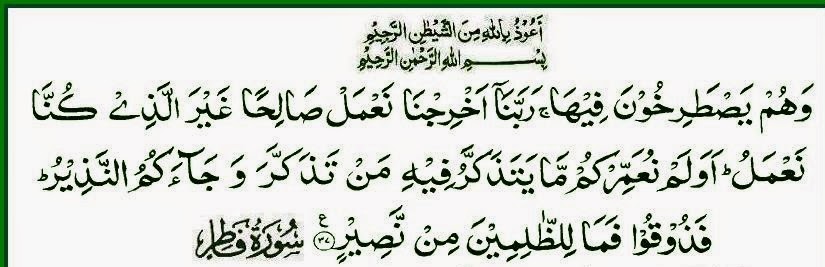 اَعُوْذُ بِاللهِ مِنَ الشَّيْطٰنِ الرَّجِيْمِ
بِسْمِ اللهِ الرَّحْمٰنِ الرَّحِيْمِ
وَهُمْ يَصْطَرِخُوْنَ فِيْهَا ۚ رَبَّنَاۤ اَخْرِجْنَا نَعْمَلْ صَالِحًا غَيْرَ الَّذِيْ كُنَّا
نَعْمَلُ ؕ اَوَلَمْ نُعَمِّرْكُمْ مَّا يَتَذَكَّرُ فِيْهِ مَنْ تَذَكَّرَ وَ جَآءَكُمُ النَّذِيْرُ ؕ
فَذُوْقُوْا فَمَا لِلظّٰلِمِيْنَ مِنْ نَّصِيْرٍ ۧ ﴿۳۷﴾ سُوْرَةُ فَاطِر